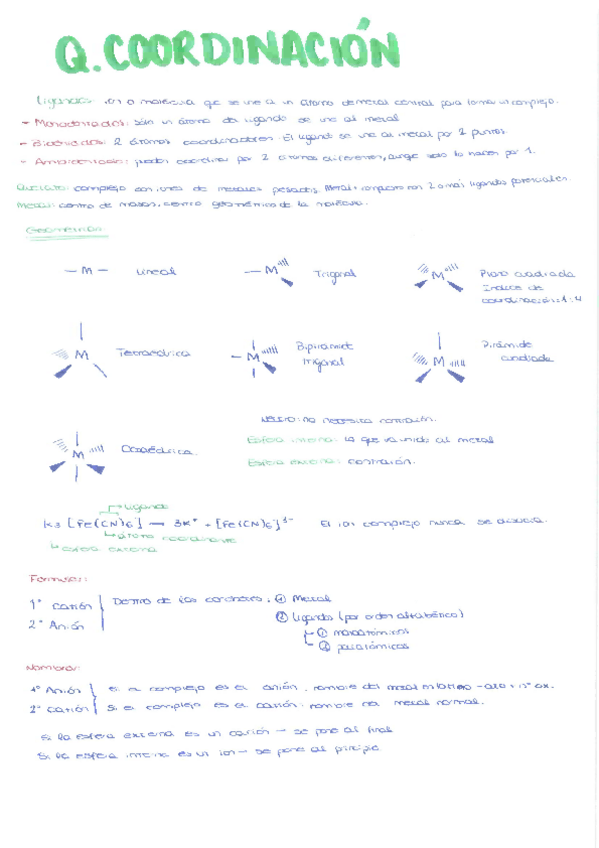 Q. COORDINACIÓN
Ligando: ion o molécula que se une a un átomo de metal central para formar un complejo.
- Monodentados: sólo un átomo de ligando se une al metal
- Bidentados: 2 átomos coordinadores. El ligand se une al metal por 2 puntos.
- Ambidentados: pueden coordinar por 2 átomos diferentes, aunque solo lo hacen por 1.
Quelato: complejo con iones de metales pesados. Metal + compuesto con 2 o más ligandos potenciales.
Metal: centro de masas, centro geométrico de la molécula.
Geometrías:
— M — Lineal
— M Trigonal
M Plano cuadrada
Índice de
coordinación: 4
M Tetraédrica
M Bipirámide
trigonal
M Pirámide
cuadrada
Neutro: no necesita contraión.
M Octaédrica.
Esfera interna: lo que va unido al metal
Esfera externa: contraión.
ligando
K3 [Fe(CN)6] → 3K+ + [Fe(CN)6]3- El ion complejo nunca se disocia.
átomo coordinante
esfera externa
Formular:
1º Catión
2º Anión
Dentro de los corchetes: ① Metal
② Ligandos (por orden alfabético)
① monoatómicos
② poliatómicos
Nombrar:
1º Anión
2º Catión
Si el complejo es el anión: nombre del metal en latino -ato + nº ox.
Si el complejo es el catión: nombre metal normal.
Si la esfera externa es un catión — se pone al final
Si la esfera interna es un ion — se pone al principio